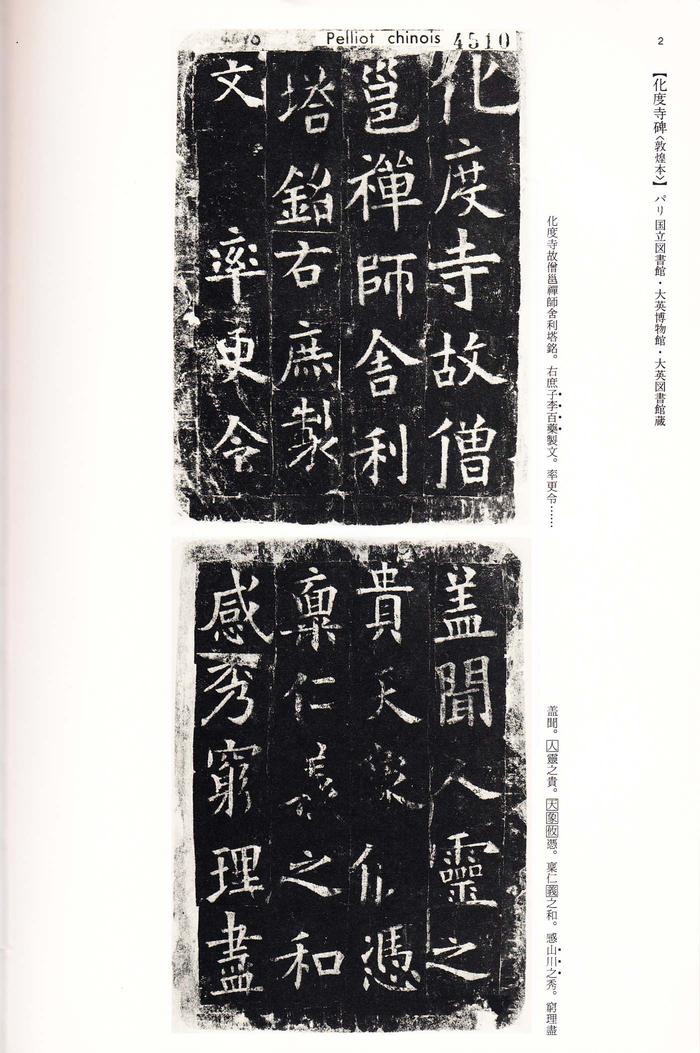 2
【化度寺碑〈敦煌本〉】 パリ国立図書館・大英博物館・大英図書館蔵
化度寺故僧邕禪師舍利塔銘。右庶子李百藥製文。率更令……
Pelliot chinois 4510
化度寺故僧
邕禪師舍利
塔銘右庶製
文 率更令
盖聞。人靈之貴。天象攸憑。稟仁義之和。感山川之秀。窮理盡
盖聞人靈之
貴天象攸憑
稟仁義之和
感秀窮理盡